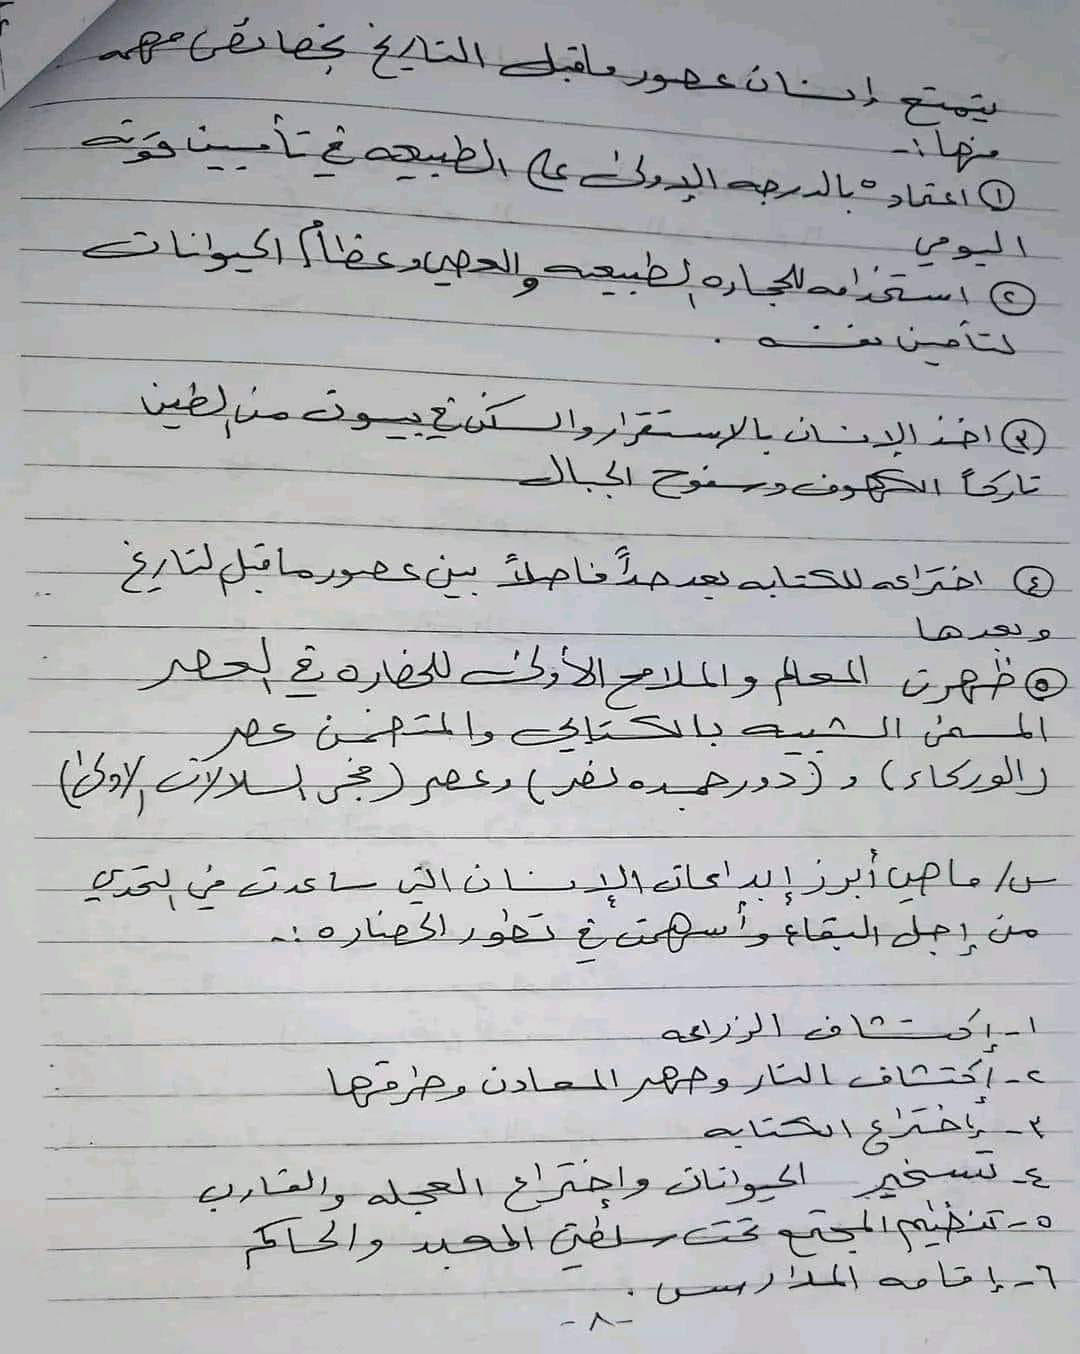 يتمتع إنسان عصور ماقبل التاريخ بخصائص مهمه
منها :-
① اعتماده بالدرجه الإولى على الطبيعه في تأمين قوته
اليومي
② استخدامه للحجاره الطبيعه والعصي وعظام الحيوانات
لتأمين نفسه .
③ اخذ الإنسان بالاستقرار والسكن في بيوت من الطين
تاركاً الكهوف وسفوح الجبال
④ اختراعه للكتابه يعد حداً فاصلاً بين عصور ماقبل التاريخ
وبعدها
⑤ ظهرت المعالم والملامح الأولى للحضاره في العصر
المسمى الشبيه بالكتابي والمتضمن عصر
(الوركاء) و (دور جمده نصر) وعصر (فجر السلالات الاولى)
س/ ماهي أبرز إبداعات الإنسان التي ساعدت في التحدي
من إجل البقاء وأسهمت في تطور الحضاره :-
١- إكتشاف الزراعه
٢- إكتشاف النار وصهر المعادن وطرقها
٣- إختراع الكتابه
٤- تسخير الحيوانات وإختراع العجله والقارب
٥- تنظيم المجتمع تحت سلطتي المعبد والحاكم
٦- إقامه المدارس .
-٨-